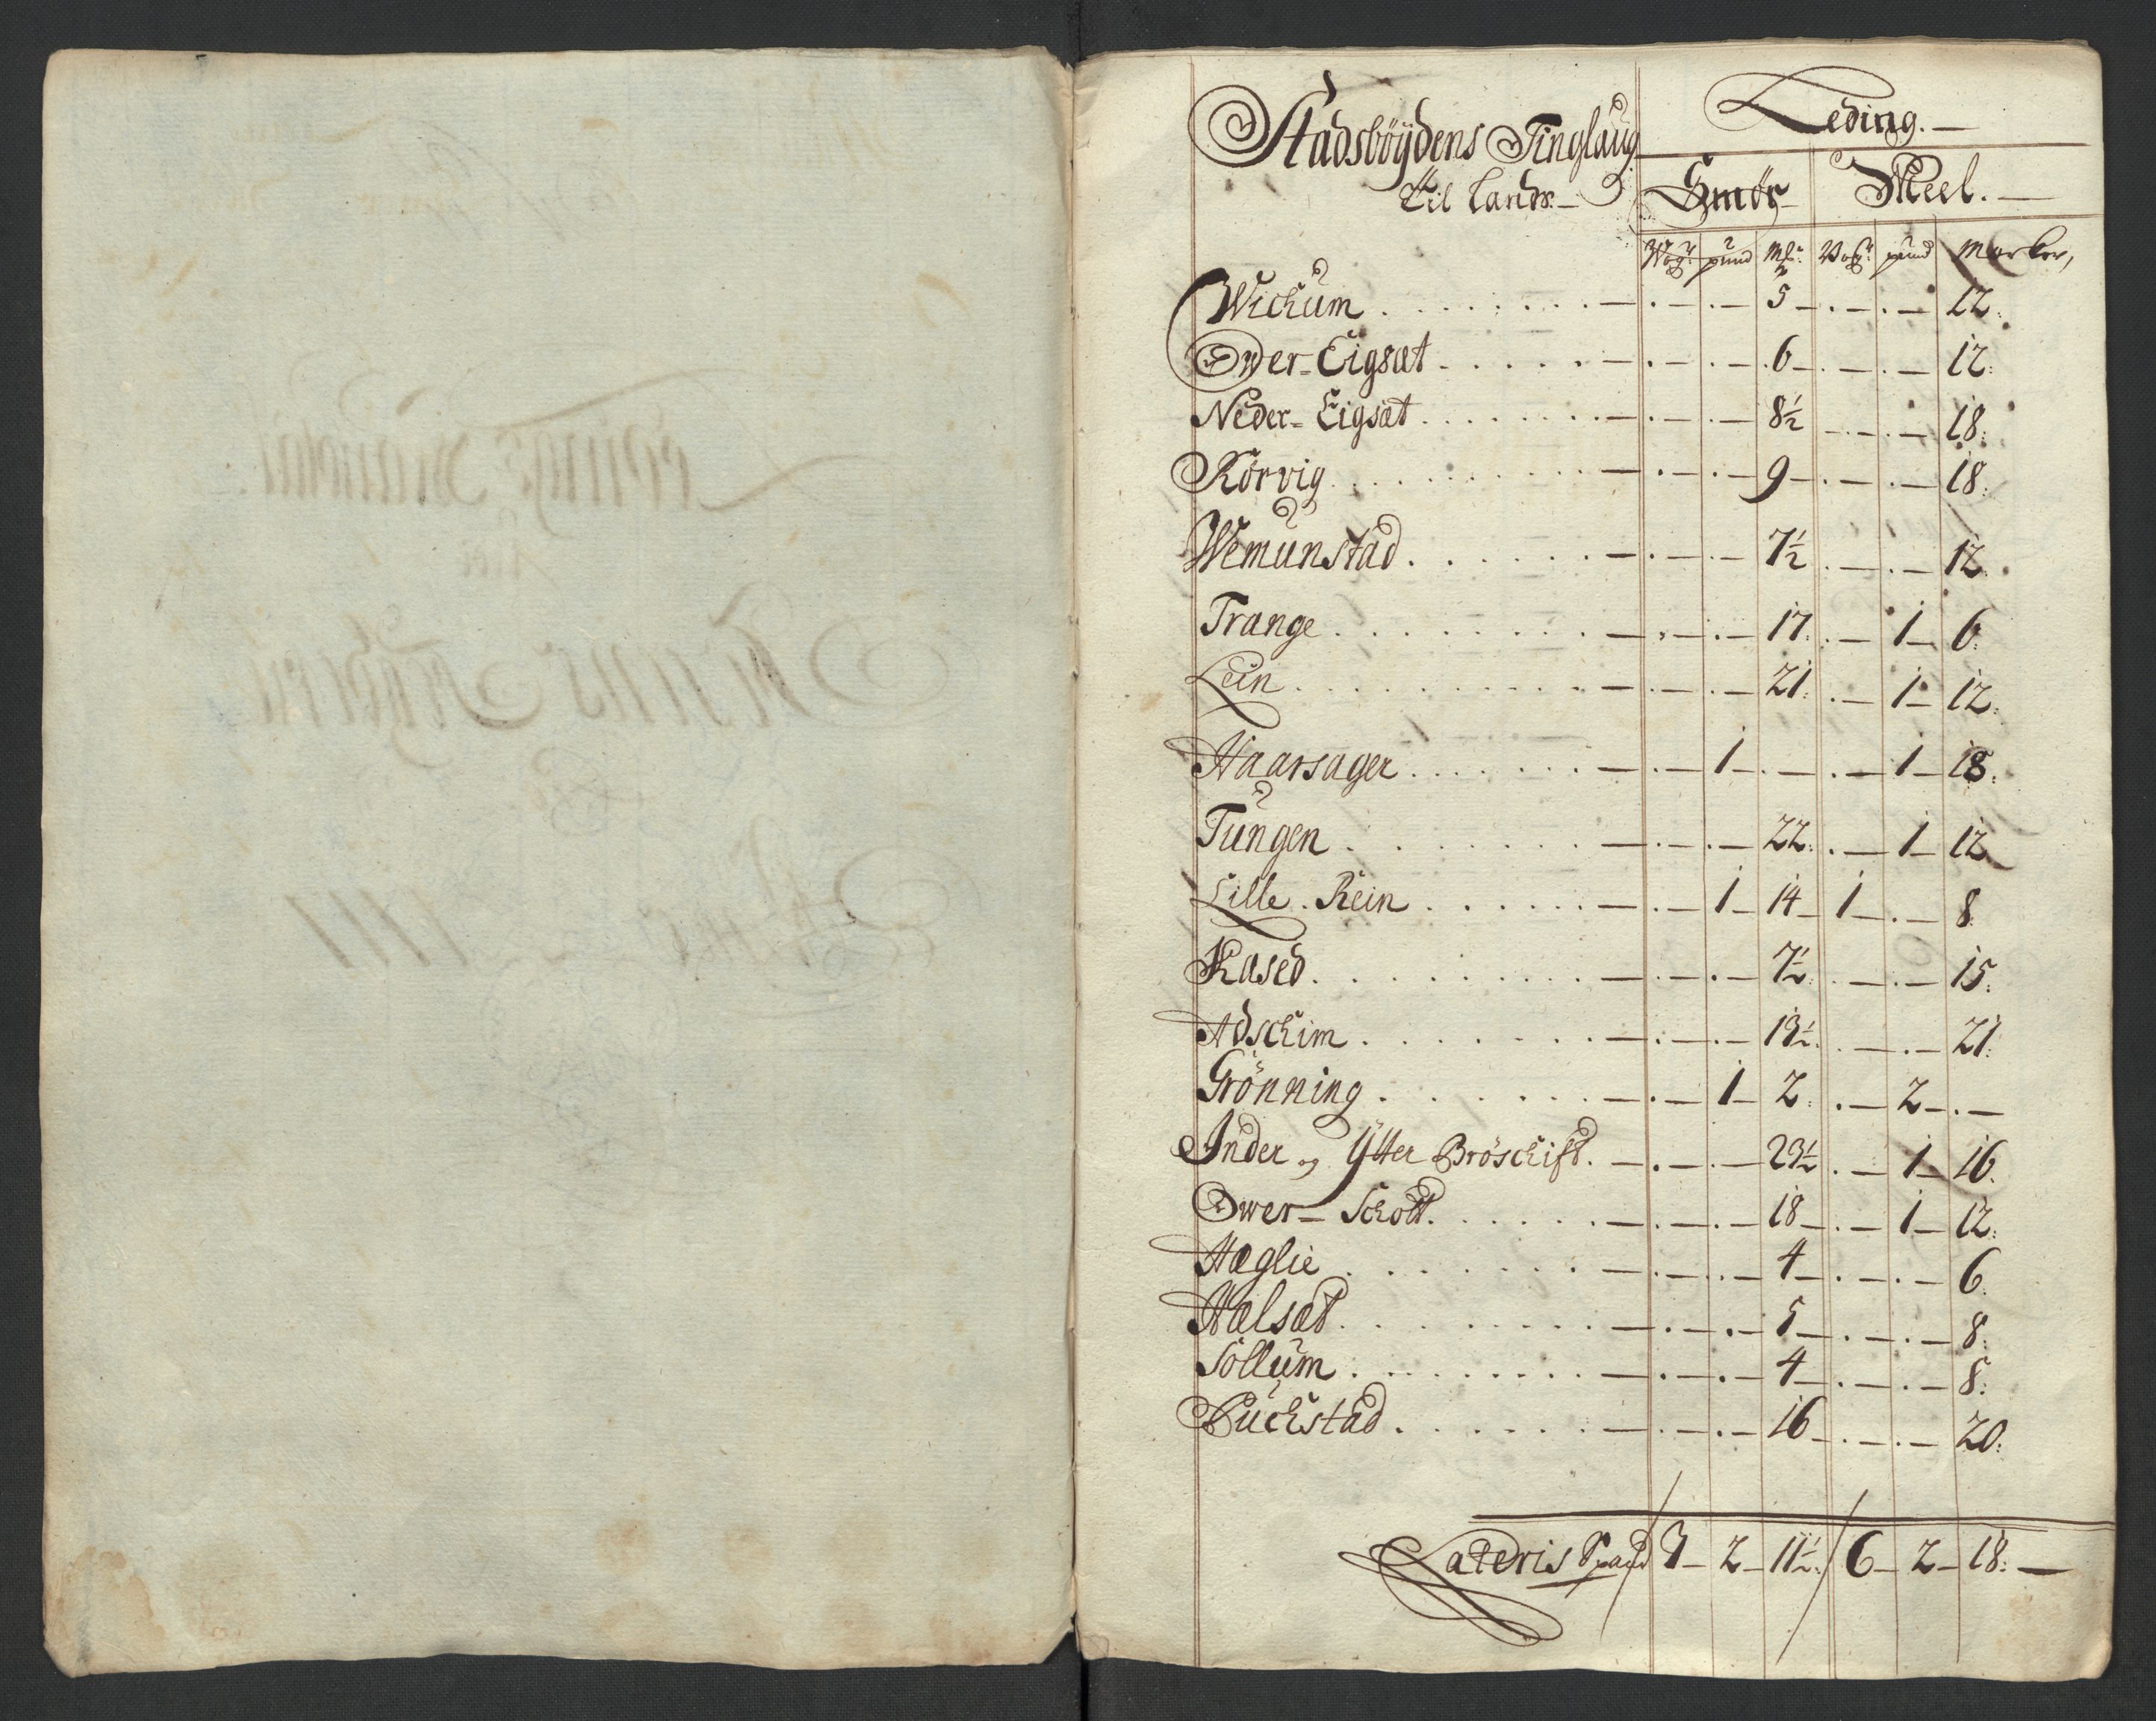 Stadsböÿdens Tinglaug
Til Lands.—
Leding.—
Smör Meel.—
Wog: pund Mk: Wog: pund Marker,
Wichum . . . . . — . — . — 5 — . — . — 12.
Ower-Eigsæt . . . . . — . — . — 6 — . — . — 12:
Neder-Eigsæt . . . . . — . — . — 8½ — . — . — 18:
Rörvig . . . . . — . — . — 9 — . — . — 18:
Wemunstad . . . . . — . — . — 7½ . — . — 12.
Trange . . . . . — . — . — 17: . — 1 — 6:
Lein . . . . . — . — . — 21: . — 1 — 12:
Haarsager . . . . . — . — 1 — . — . — 1 — 18:
Tungen . . . . . — . — . — 22: . — 1 — 12
Lille-Rein . . . . . — . — 1 — 14 — 1 — . — 8:
Kased . . . . . — . — . — 7½: . — . — 15:
Adschim . . . . . — . — . — 13½: . — . — 21:
Grönning . . . . . — . — 1 — 2: . — 2 — . —
Inder og Ÿtter Bröschift . — . — . — 23½ . — 1 — 16.
Ower-Schott . . . . . — . — . — 18 — . — 1 — 12:
Hæglie . . . . . — . — . — 4 — . — . — 6:
Hælsæt . . . . . — . — . — 5 — . — . — 8:
Sollum . . . . . — . — . — 4 — . — . — 8:
Buchstad . . . . . — . — . — 16 — . — . — 20:
Lateris Spand 3 — 2 — 11½: 6 — 2 — 18: —